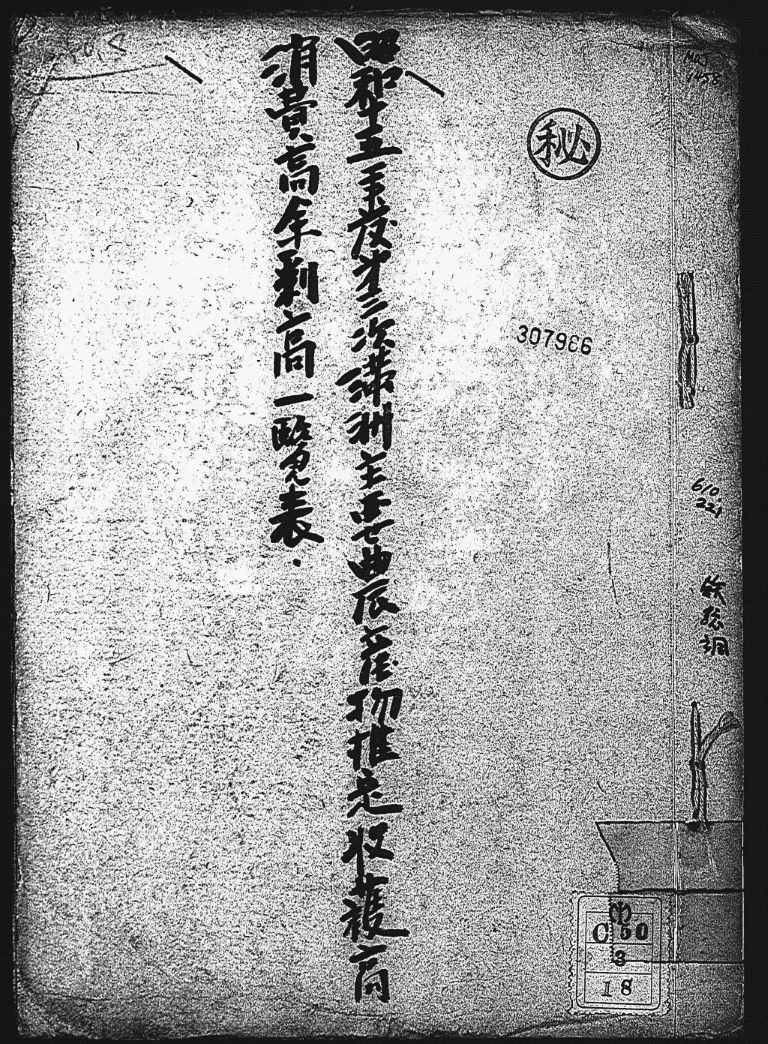 秘
307986
610
221
昭和十五年度才三次満洲主要農産物推定収穫高
消費高余剰高一覧表.
C 50
3
18